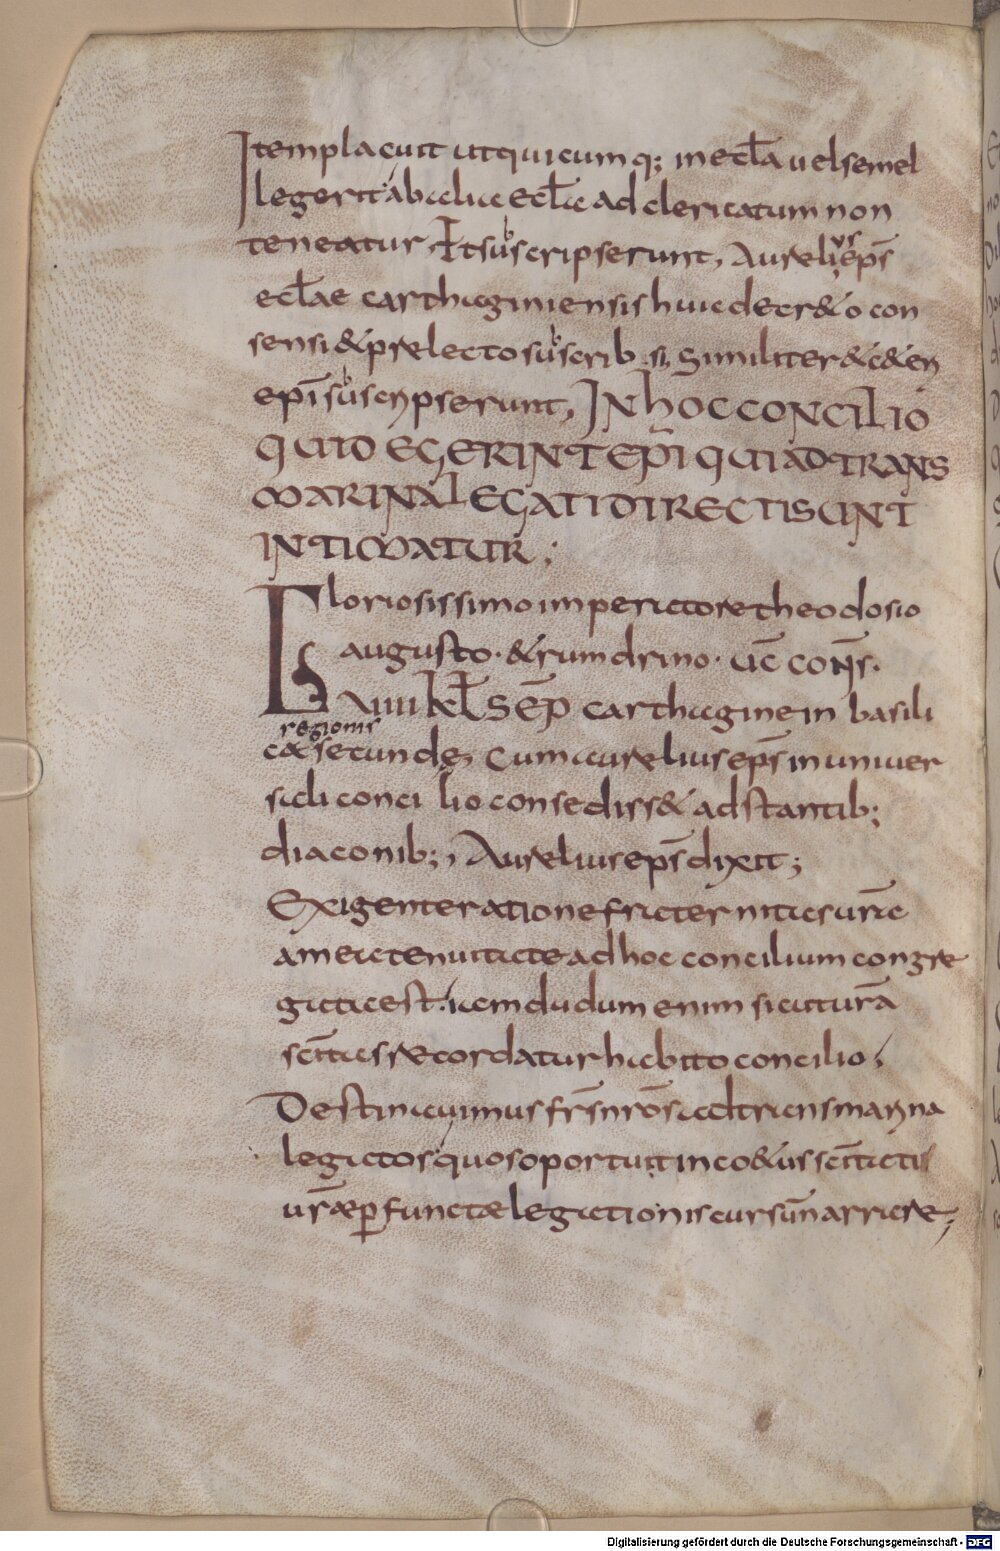 Item placuit ut quicumq; in eccła uel semel
legerit ab alia eccła ad clericatum non
teneatur, Et subscripserunt, Aurelius eps̄
eccłae carthaginiensis huic decr&o con
sensi & prelecto subscrib si, Similiter & c&eri
epī subscripserunt, IN hOC CONCILIO
QUID EGERINT EPI QUI AD TRANS
MARINA LEGATI DIRECTI SUNT
INTIMATUR;
Gloriosissimo imperatore theodosio
augusto· & rumorido· uc̄ cons̄·
VIIII kł SEP̄ carthagine in basili
regionis
ca secunde, Cum aurelius eps̄ in uniuer
sali concilio consediss& adstantib;
diaconib;, Aurelius eps̄ dixit;
Exigente ratione fraternitas ur̄a
amantenuitate ad hoc concilium congre
gata est. nam dudum enim sicut ur̄a
sc̄itas recordatur habito concilio,
Destinauimus fr̄s nr̄os ad transmarina
legatos quos oportuit in eo&us sc̄itatis
ur̄ae perfunctae legationis cursūn arrare,
Digitalisierung gefördert durch die Deutsche Forschungsgemeinschaft - DFG